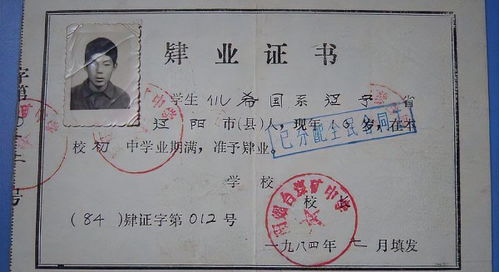 肄业证书
学生 仉希国 系 辽宁 省
辽阳 市(县)人，现年 岁，在本
校 初 中学业期满，准予肄业。
已分配全民合同
学校
校长
烟台煤矿中学
(84)肄证字第012号
一九八四年 月填发
字第
号